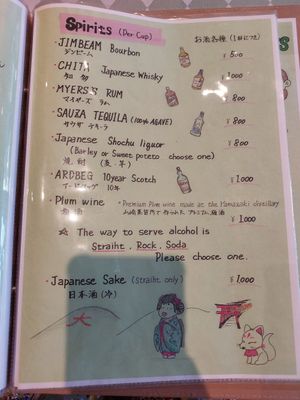 Spirits (Per Cup) お酒各種 (1杯につき)
・JIMBEAM Bourbon ¥500
ジンビーム
・CHITA Japanese Whisky ¥1000
知多
・MYERS'S RUM ¥800
マイヤーズ ラム
・SAUZA TEQUILA (100% AGAVE) ¥800
サウザ テキーラ
・Japanese Shochu liquor ¥800
(Barley or Sweet poteto choose one)
焼酎 (麦・芋)
・ARDBEG 10year Scotch ¥1000
アードベッグ 10年
・Plum wine ・Premium Plum wine made at the Yamazaki distillery
梅酒 山崎蒸留所で作られたプレミアム梅酒 ¥1000
☆ The way to serve alcohol is
Straiht . Rock . Soda
Please choose one.
・Japanese Sake (Straiht only) ¥1,000
日本酒 (冷)
大